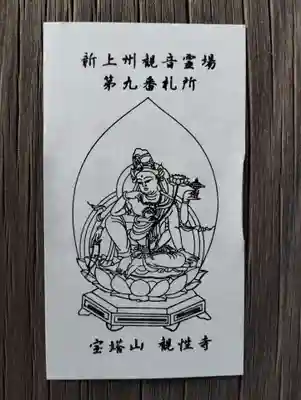 新上州観音霊場
第九番札所
宝塔山 観性寺